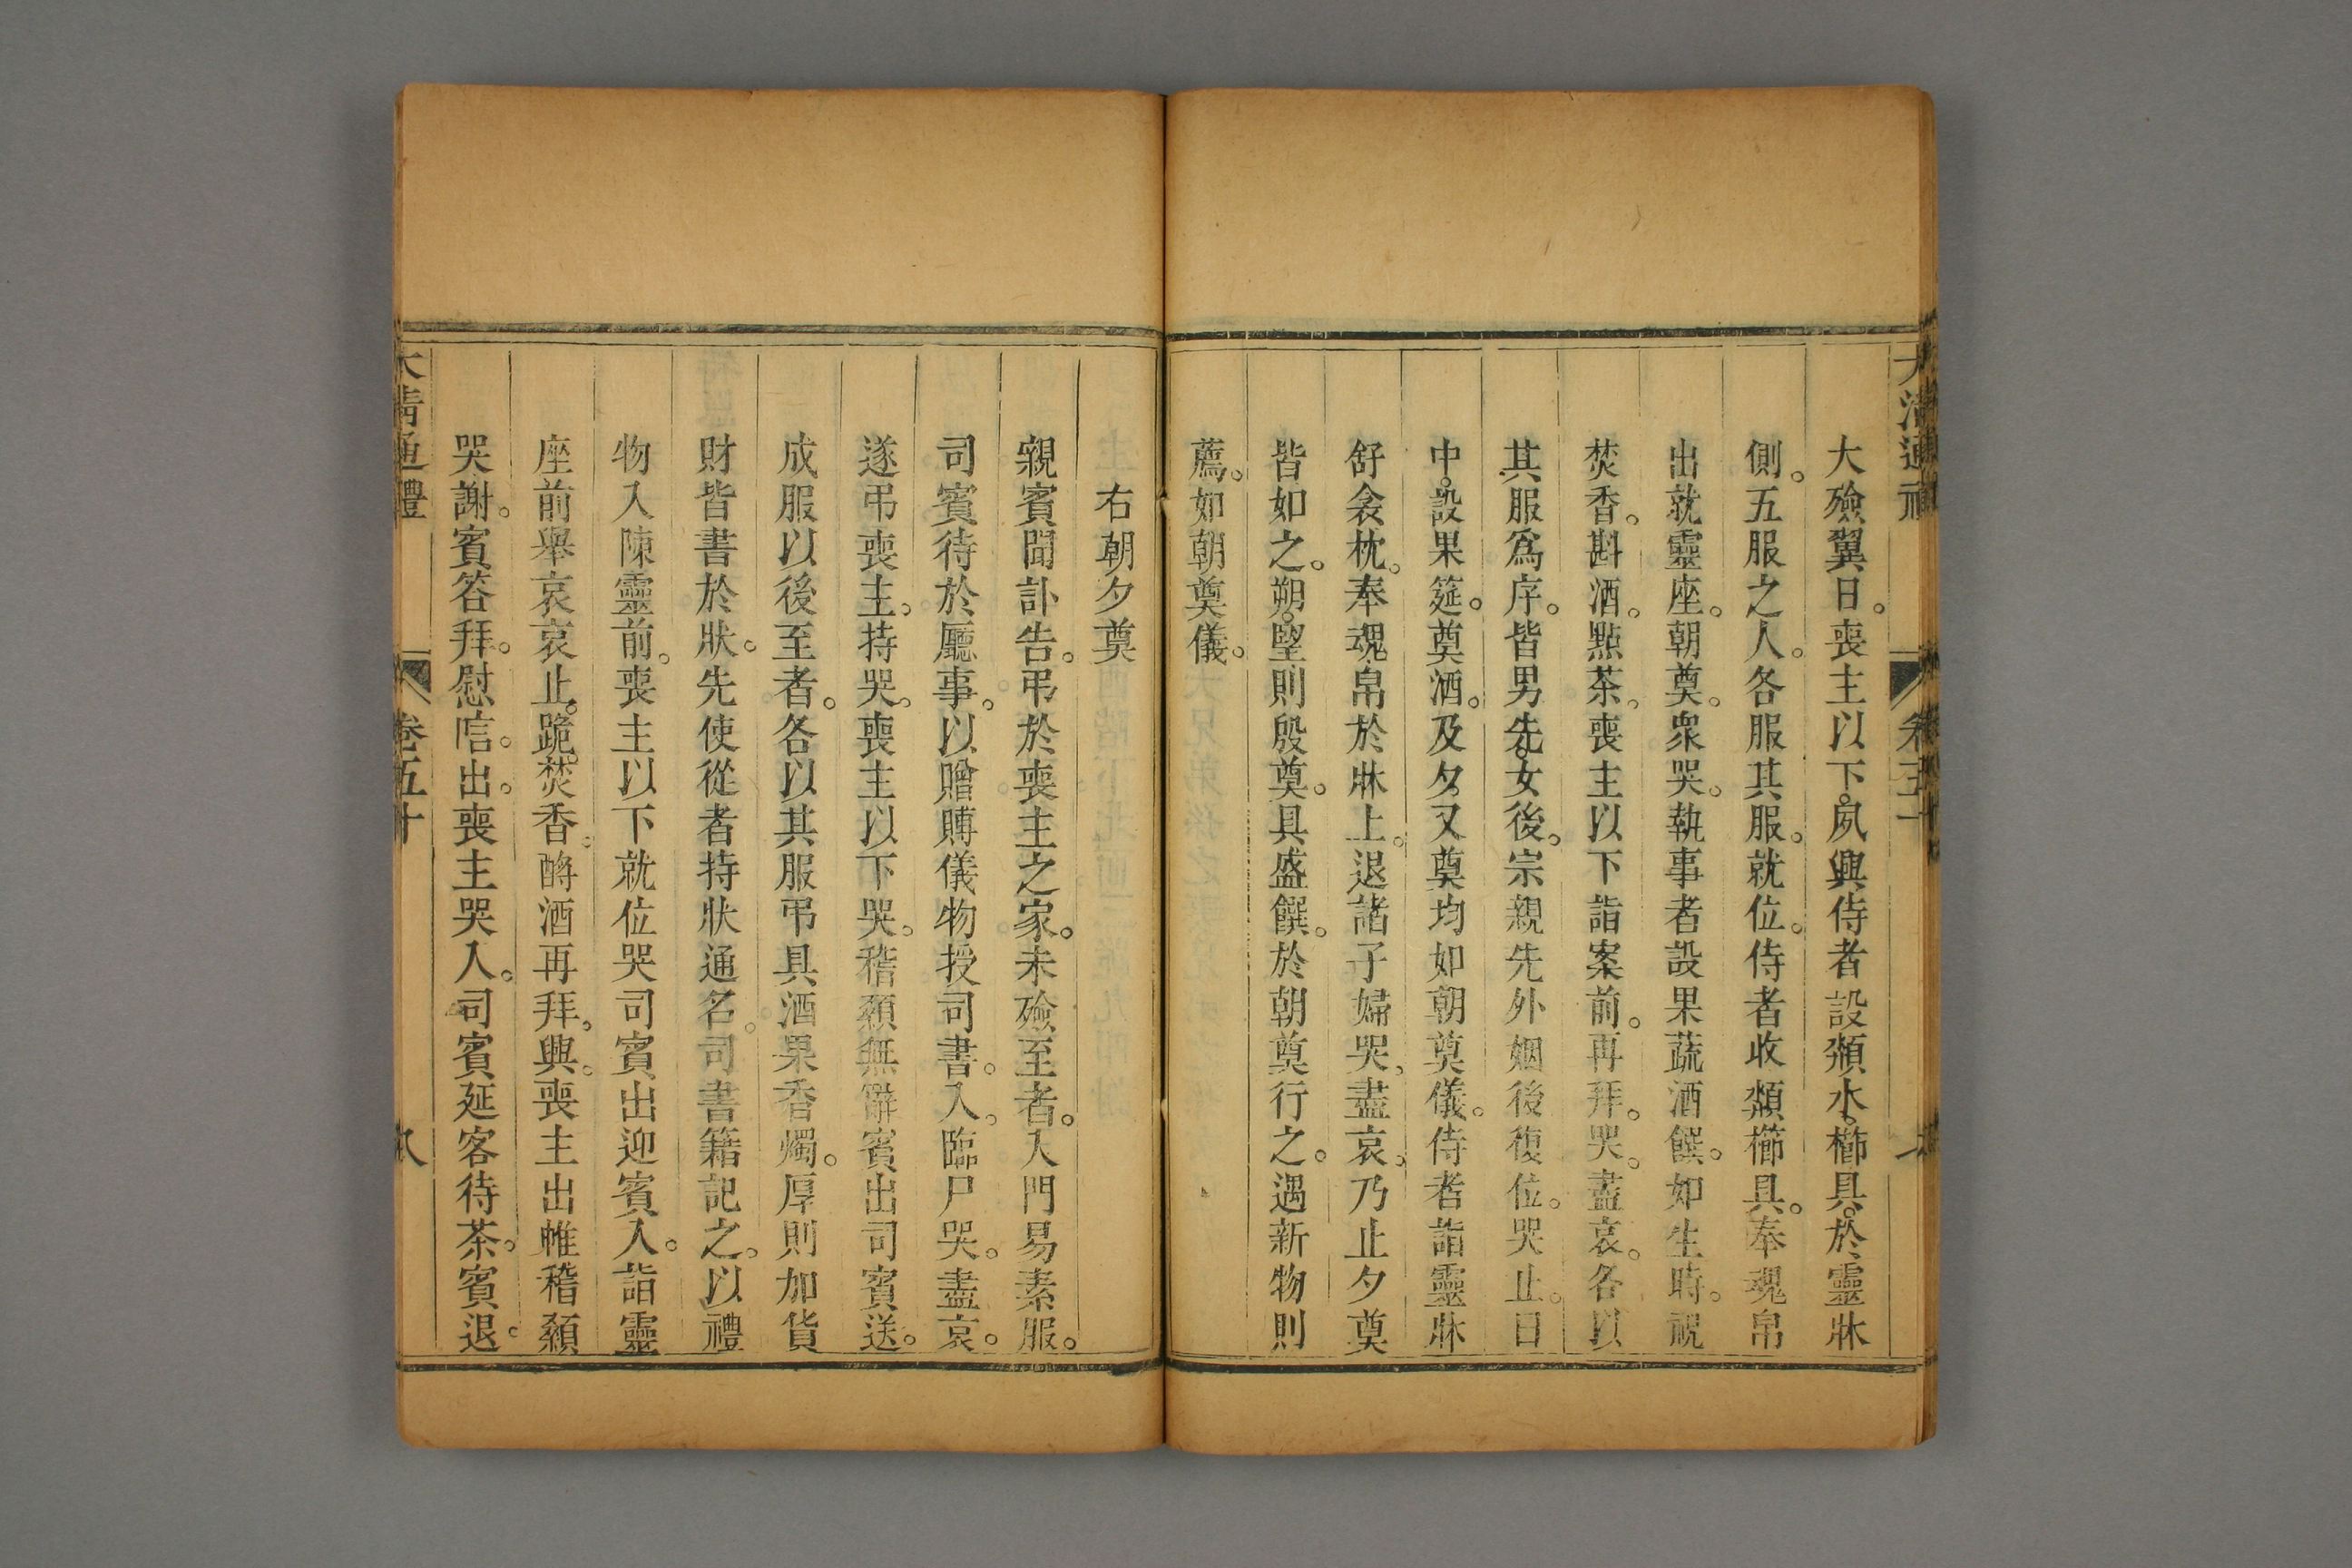 大殮翼日。喪主以下。夙興侍者設頮水。櫛具。於靈牀
側。五服之人。各服其服。就位。侍者收頮櫛具。奉魂帛
出就靈座。朝奠。衆哭。執事者設果蔬酒饌。如生時。祝
焚香。斟酒。點茶。喪主以下詣案前。再拜。哭。盡哀。各以
其服爲序。皆男先。女後。宗親先外姻後復位。哭止。日
中。設果筵。奠酒。及夕。又奠均如朝奠儀。侍者詣靈牀
舒衾枕。奉魂帛於牀上。退諸子婦哭。盡哀。乃止夕奠
皆如之。朔。望則殷奠。具盛饌。於朝奠行之。遇新物則
薦。如朝奠儀。
右朝夕奠
親賓聞訃告。弔於喪主之家。未殮至者。入門易素服。
司賓待於廳事。以贈賻儀物授司書。入。臨尸哭。盡哀。
遂弔喪主。持哭。喪主以下哭。稽顙無辭賓出司賓送。
成服以後至者。各以其服弔具酒果香燭。厚則加貨
財皆書於狀。先使從者持狀通名。司書籍記之。以禮
物入陳靈前。喪主以下就位哭司賓出迎賓入。詣靈
座前舉哀哀止。跪。焚香。酹酒再拜。興。喪主出帷稽顙
哭謝。賓答拜。慰唁。出。喪主哭入。司賓延客待茶。賓退。
大清通禮 卷五十 八